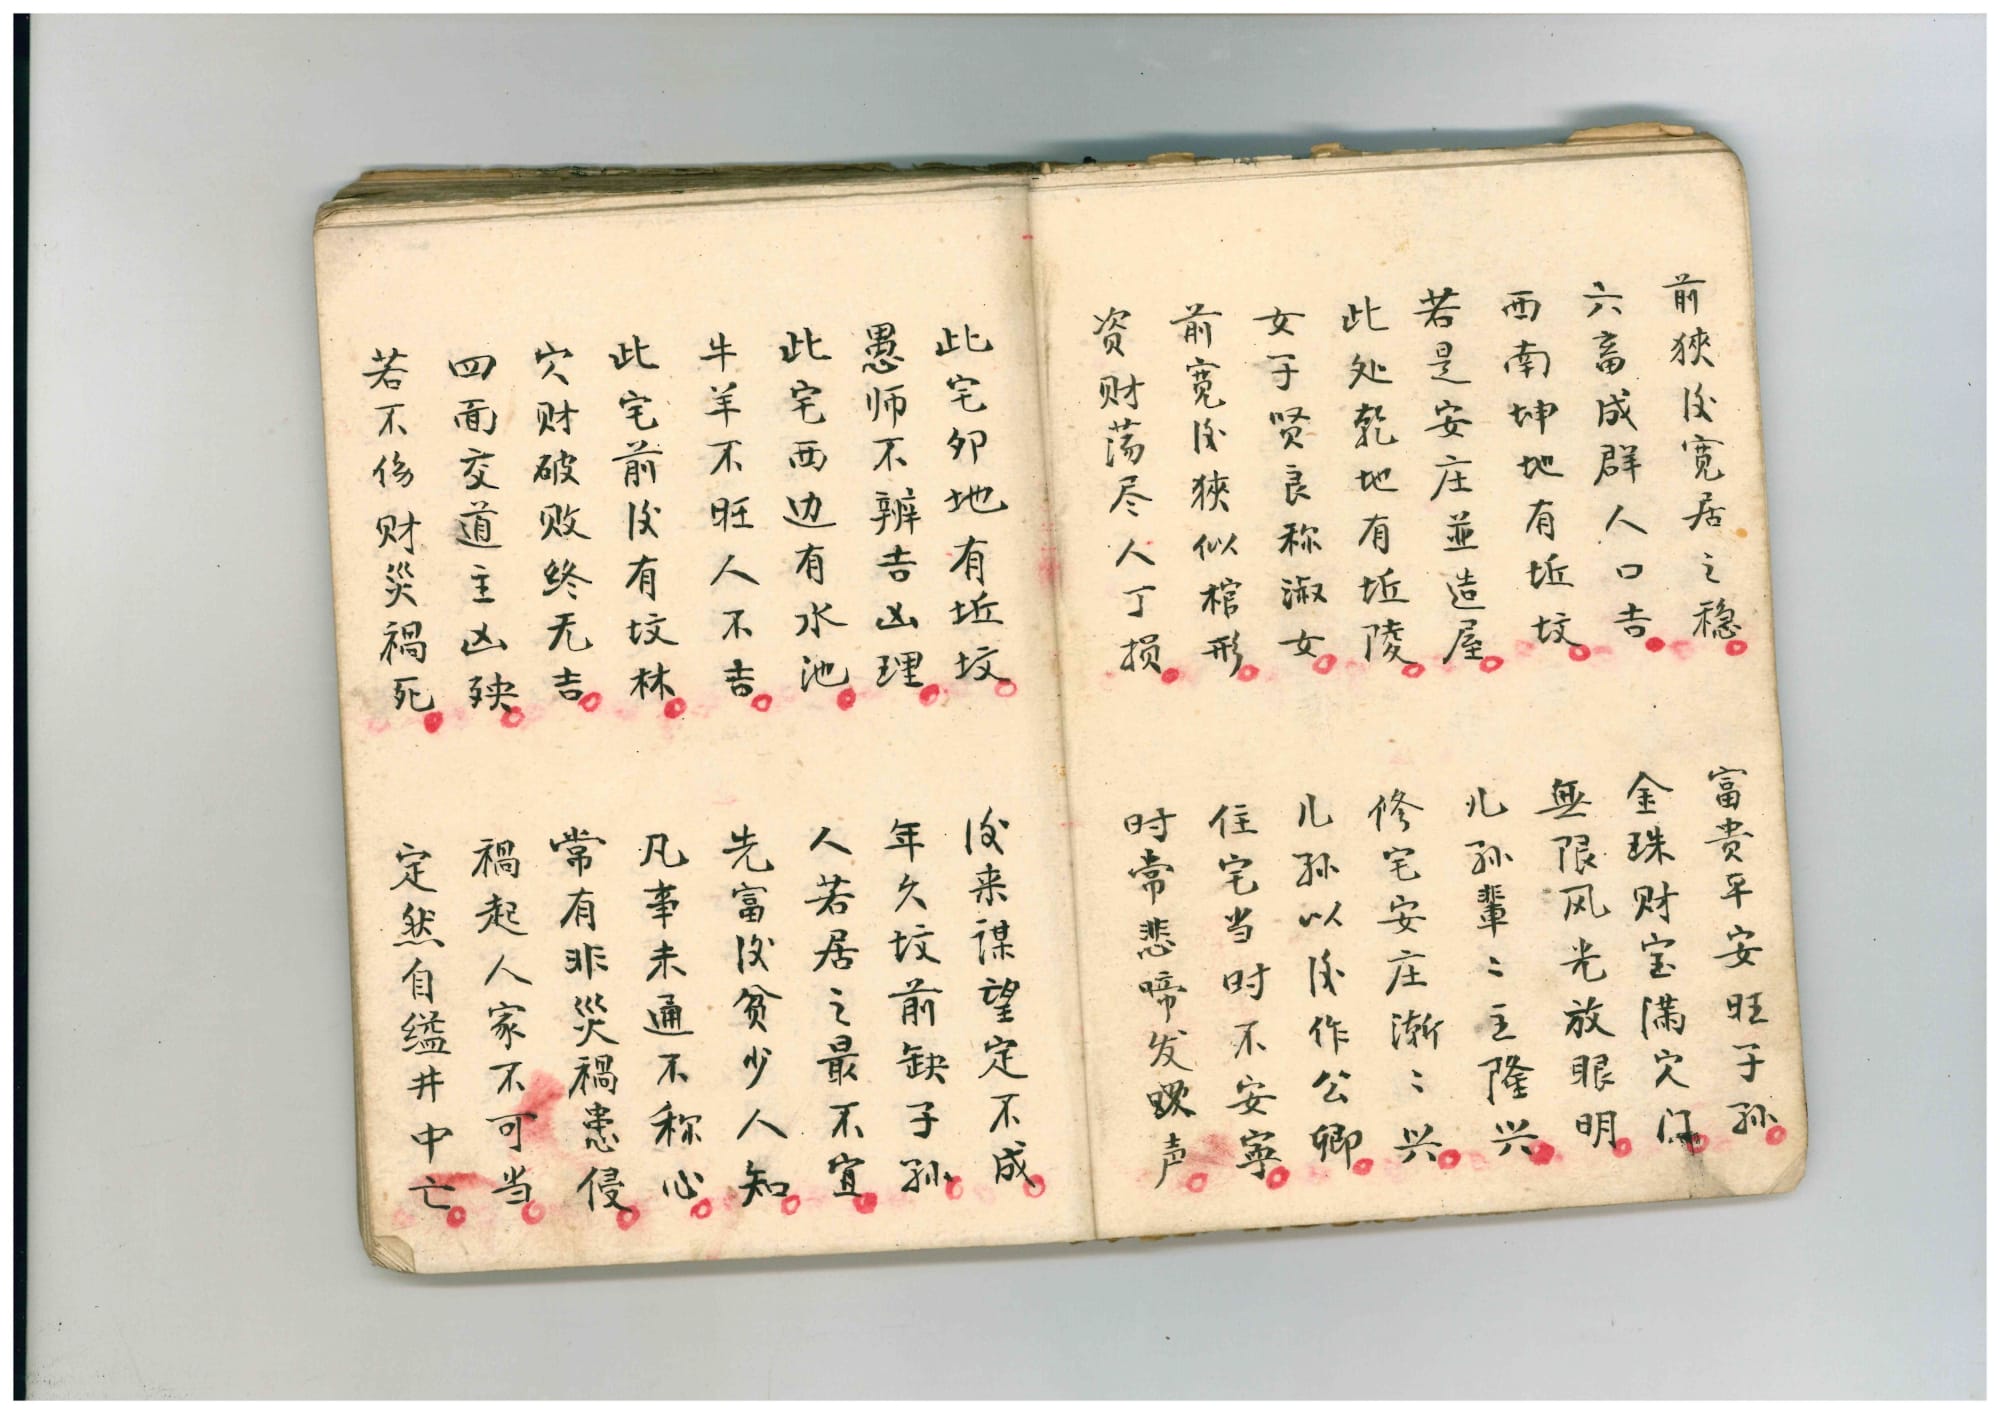 前狹後宽居之稳 富貴平安旺子孙
六畜成群人口吉 金珠财宝满穴门
西南坤地有坵坟 無限风光放眼明
若是安庄並造屋 儿孙輩〻主隆兴
此处乾地有坵陵 修宅安庄渐〻兴
女子贤良称淑女 儿孙以後作公卿
前宽後狹似棺形 住宅当时不安寧
资财荡尽人丁损 时常悲啼发嘆声
此宅卯地有坵坟 後来谋望定不成
愚师不辨吉凶理 年久坟前缺子孙
此宅西边有水池 人若居之最不宜
牛羊不旺人不吉 先富後贫少人知
此宅前後有坟林 凡事未通不称心
穴财破败终无吉 常有非災禍患侵
四面交道主凶殃 禍起人家不可当
若不伤财災禍死 定然自缢井中亡